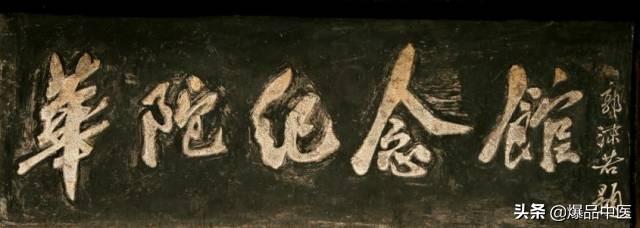 華陀纪念館
郭沫若題
头条 @爆品中医